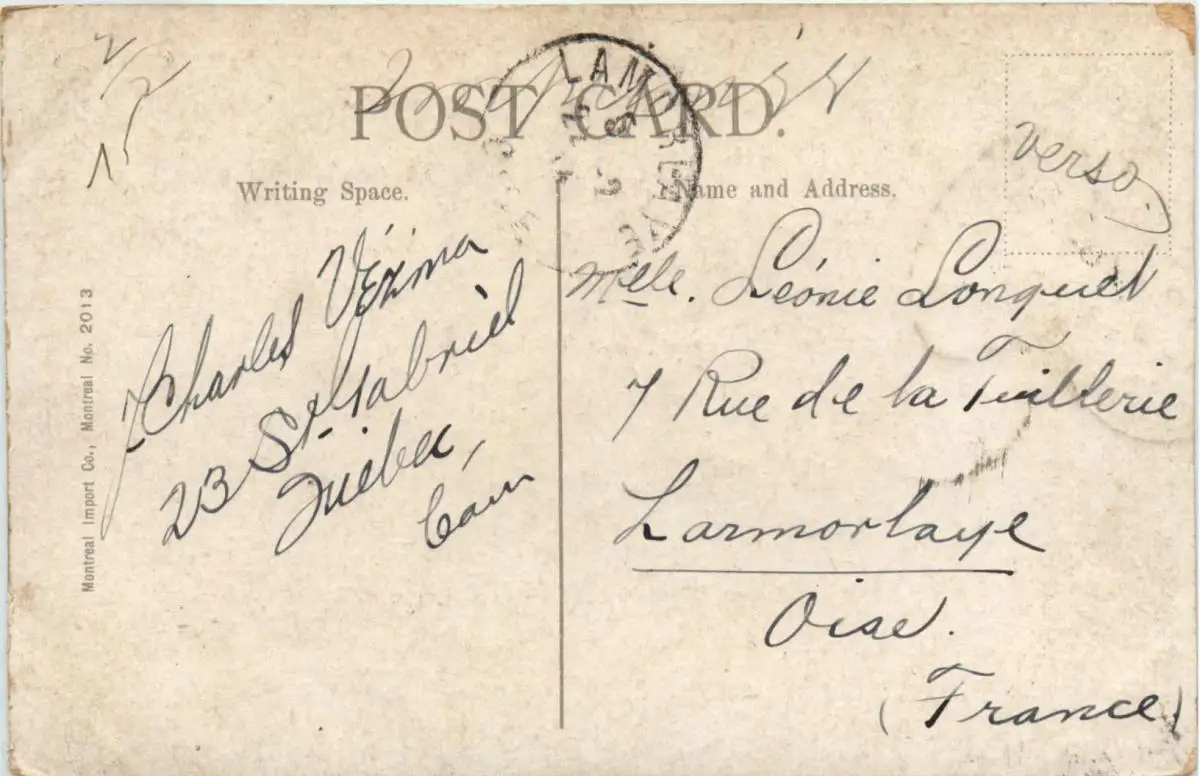 POST CARD.
verso
Writing Space.
Name and Address.
Charles Vézina
23 St. Gabriel
Quebec,
Can
Melle. Léonie Longuet
7 Rue de la Tuillerie
Larmorlaye
Oise.
(France)
Montreal Import Co., Montreal No. 2013